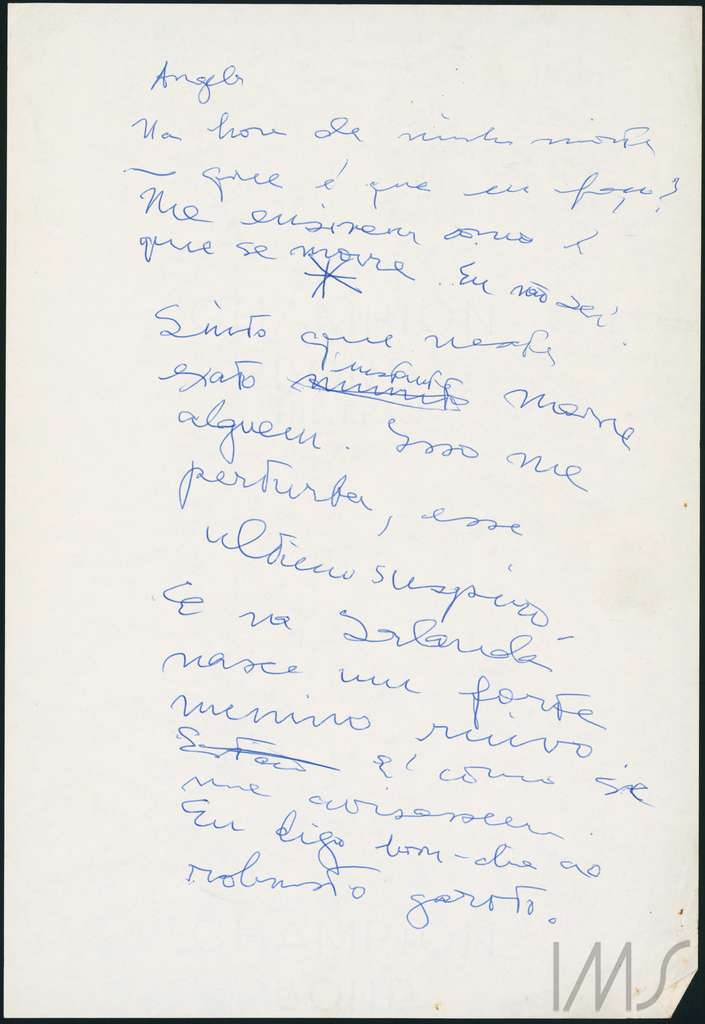 Angela
Na hora de minha morte
— que é que eu faço?
Me ensinem como é
que se morre. Eu não sei.
*
Sinto que neste
exato instante minuto morre
alguem. Isso me
perturba, esse
ultimo suspiro.
E na Irlanda
nasce um forte
menino ruivo
É como se
me avisassem.
Eu digo bom-dia ao
robusto garoto.
IMS